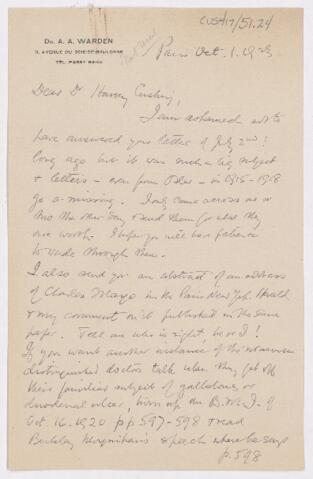 CUSH17/51.24
DR. A. A. WARDEN
TEL. PASSY
Paris Oct. 1. 1925
Dear Dr Harvey Cushing,
I am ashamed not to
have answered your letter of July 2nd!
long ago but it was such a big subject
& letters — even from Osler — in 1915-1918
go a-missing. I only came across
the other day & send them for what they
are worth. I hope you will have patience
to wade through them.
I also send you an abstract of an address
of Charles Mayo in the Paris New York Herald
& my comment on it published in the same
paper. Tell me who is right, he or I!
If you want another instance of the nonsense
distinguished doctors talk when they get off
their favourite subject of gallstones or
duodenal ulcer, turn up the B.M.J. of
Oct. 16. 1920 pp 597-598 & read
Berkeley Moynihan's speech where he says
p. 598